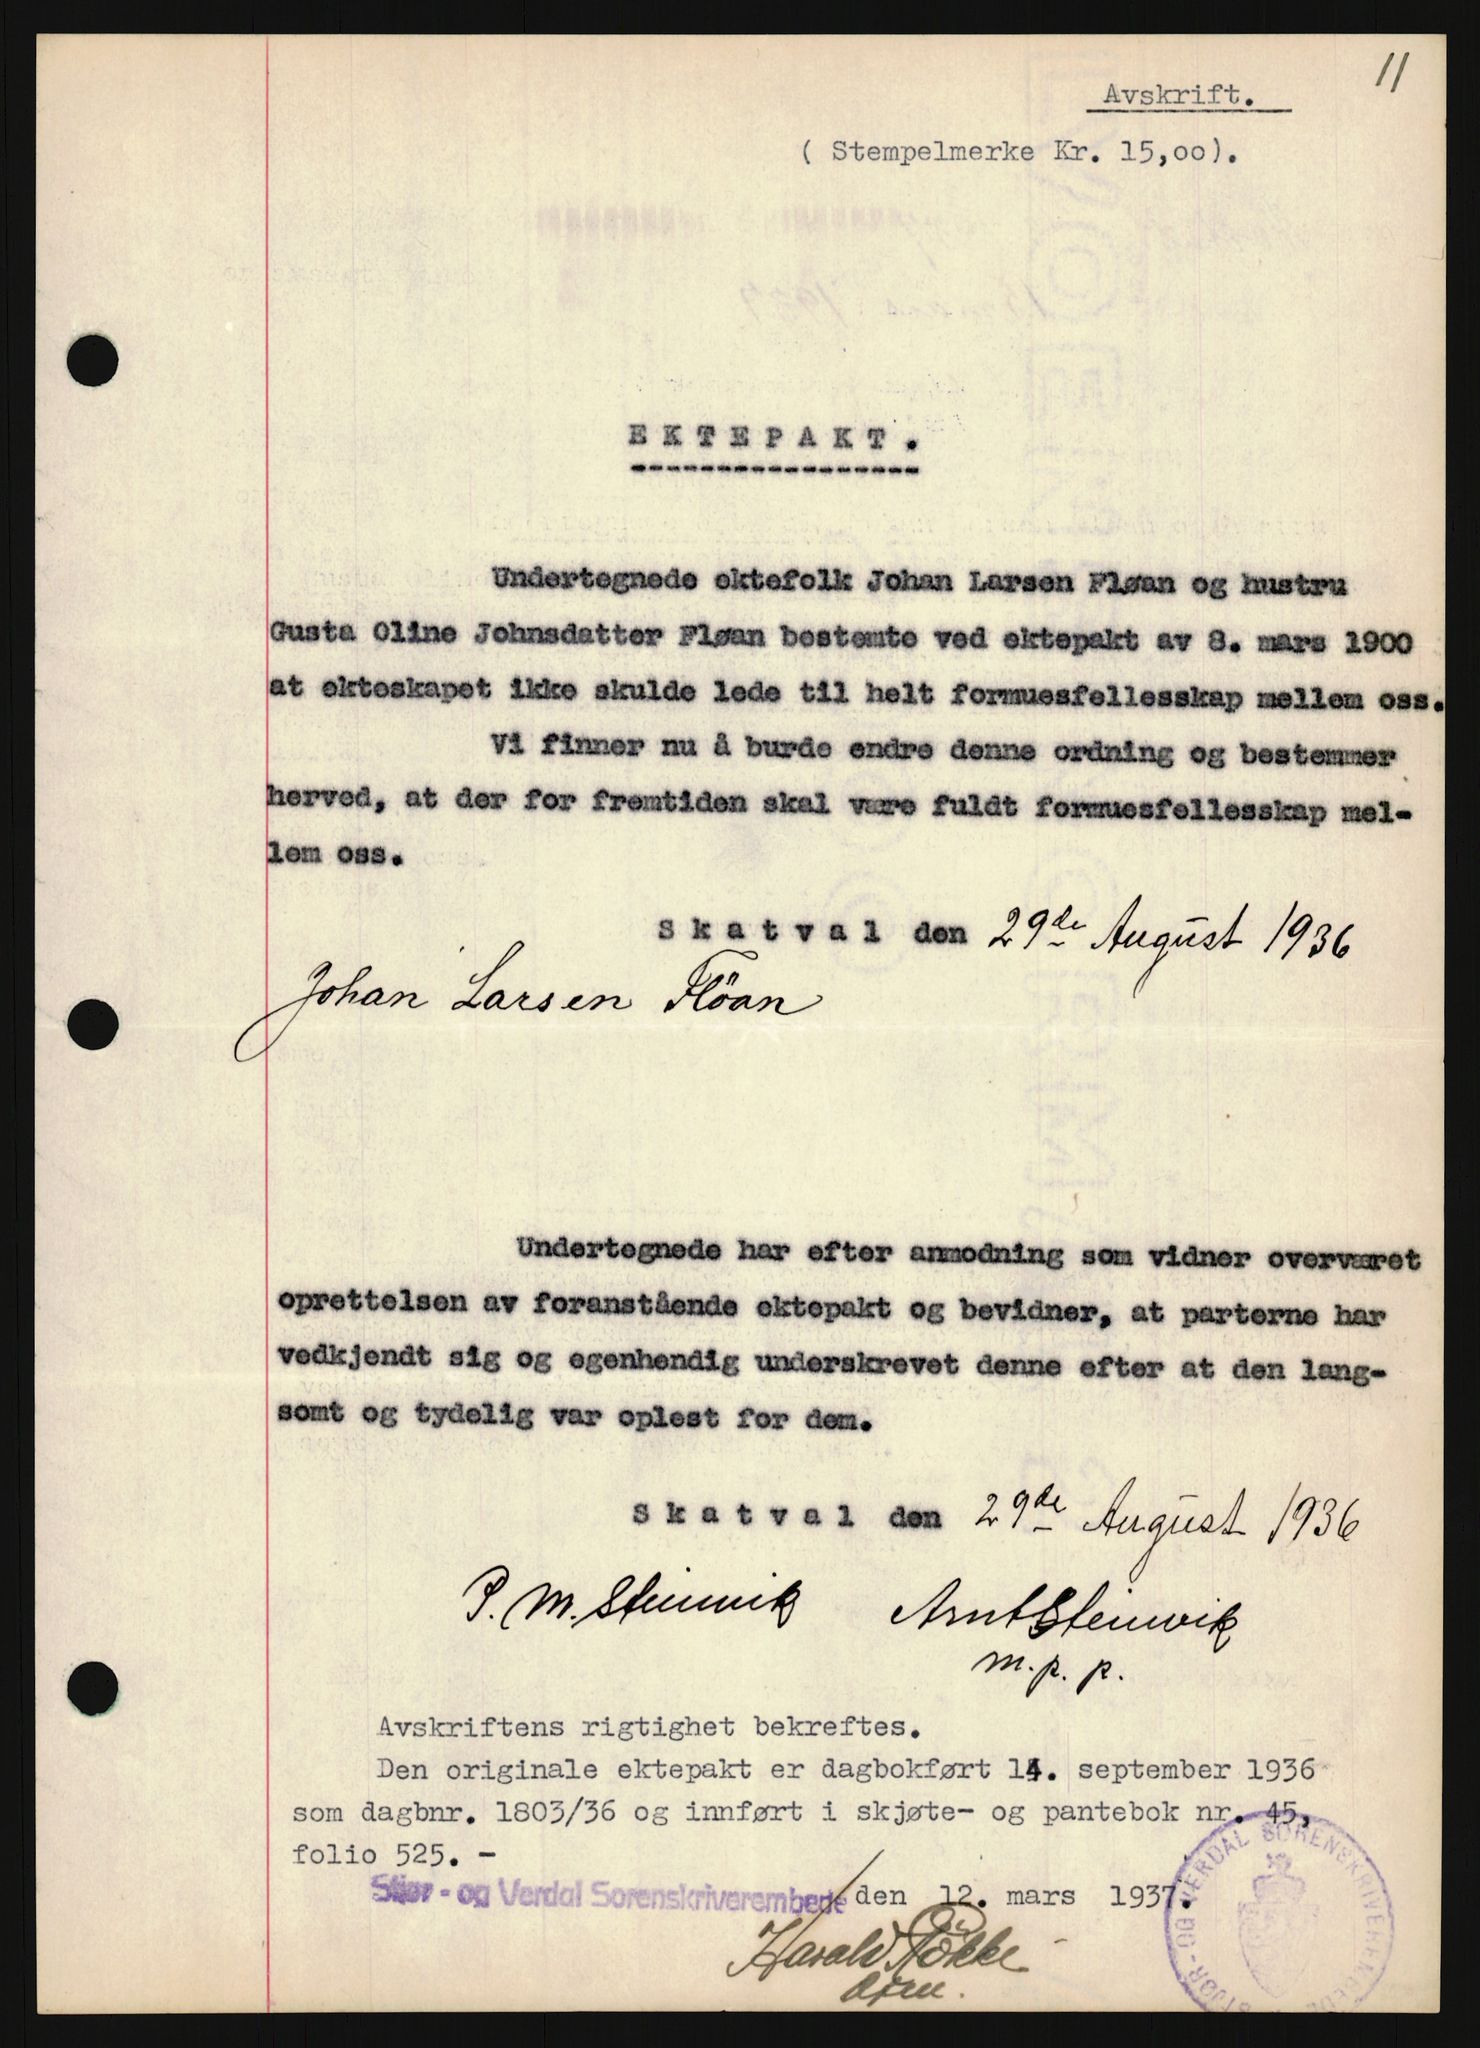 11
Avskrift.
( Stempelmerke Kr. 15,oo).
EKTEPAKT.
Undertegnede ektefolk Johan Larsen Fløan og hustru
Gusta Oline Johnsdatter Fløan bestemte ved ektepakt av 8. mars 1900
at ekteskapet ikke skulde lede til helt formuesfellesskap mellem oss.
Vi finner nu å burde endre denne ordning og bestemmer
herved, at der for fremtiden skal være fuldt formuesfellesskap mel-
lem oss.
Skatval den 29de August 1936
Johan Larsen Flöan
Undertegnede har efter anmodning som vidner overværet
oprettelsen av foranstående ektepakt og bevidner, at parterne har
vedkjendt sig og egenhendig underskrevet denne efter at den lang-
somt og tydelig var oplest for dem.
Skatval den 29de August 1936
P. M. Steinvik Arnt Steinvik
m. p. p.
Avskriftens rigtighet bekreftes.
Den originale ektepakt er dagbokført 14. september 1936
som dagbnr. 1803/36 og innført i skjøte- og pantebok nr. 45,
folio 525. -
Stjør- og Verdal Sorenskriverembede den 12. mars 1937.
Harald
STJØR- OG VERDAL SORENSKRIVEREMBEDE